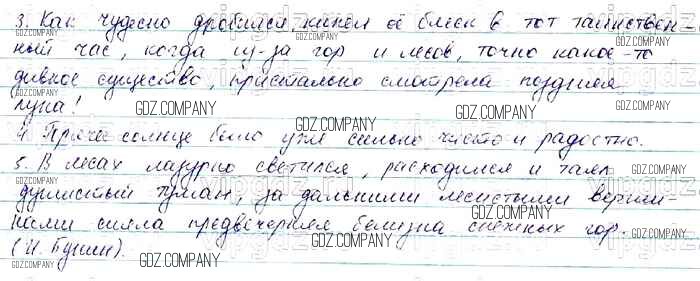 3. Как чудесно дробился, кипел её блеск в тот таинствен-
ный час, когда из-за гор и лесов, точно какое-то
дивное существо, пристально смотрела поздняя
луна!
GDZ.COMPANY
GDZ.COMPANY
GDZ.COMPANY
4. солнце было уже сильно чисто и радостно.
5. В лесах лазурно светился, расходился и таял
GDZ.COMPANY
GDZ.COMPANY
душистый туман, за дальними лесистыми верши-
нами сияла предвечерняя белизна снежных гор.
GDZ.COMPANY
GDZ.COMPANY
(И. Бунин).
GDZ.COMPANY